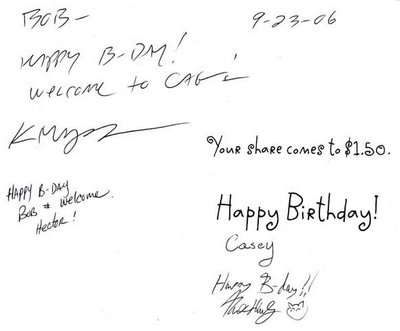 BOB- 9-23-06
HAPPY B-DAY!
Welcome to
Your share comes to $1.50.
HAPPY B-DAY
BOB & welcome
Hector!
Happy Birthday!
Casey
Happy B-day!!